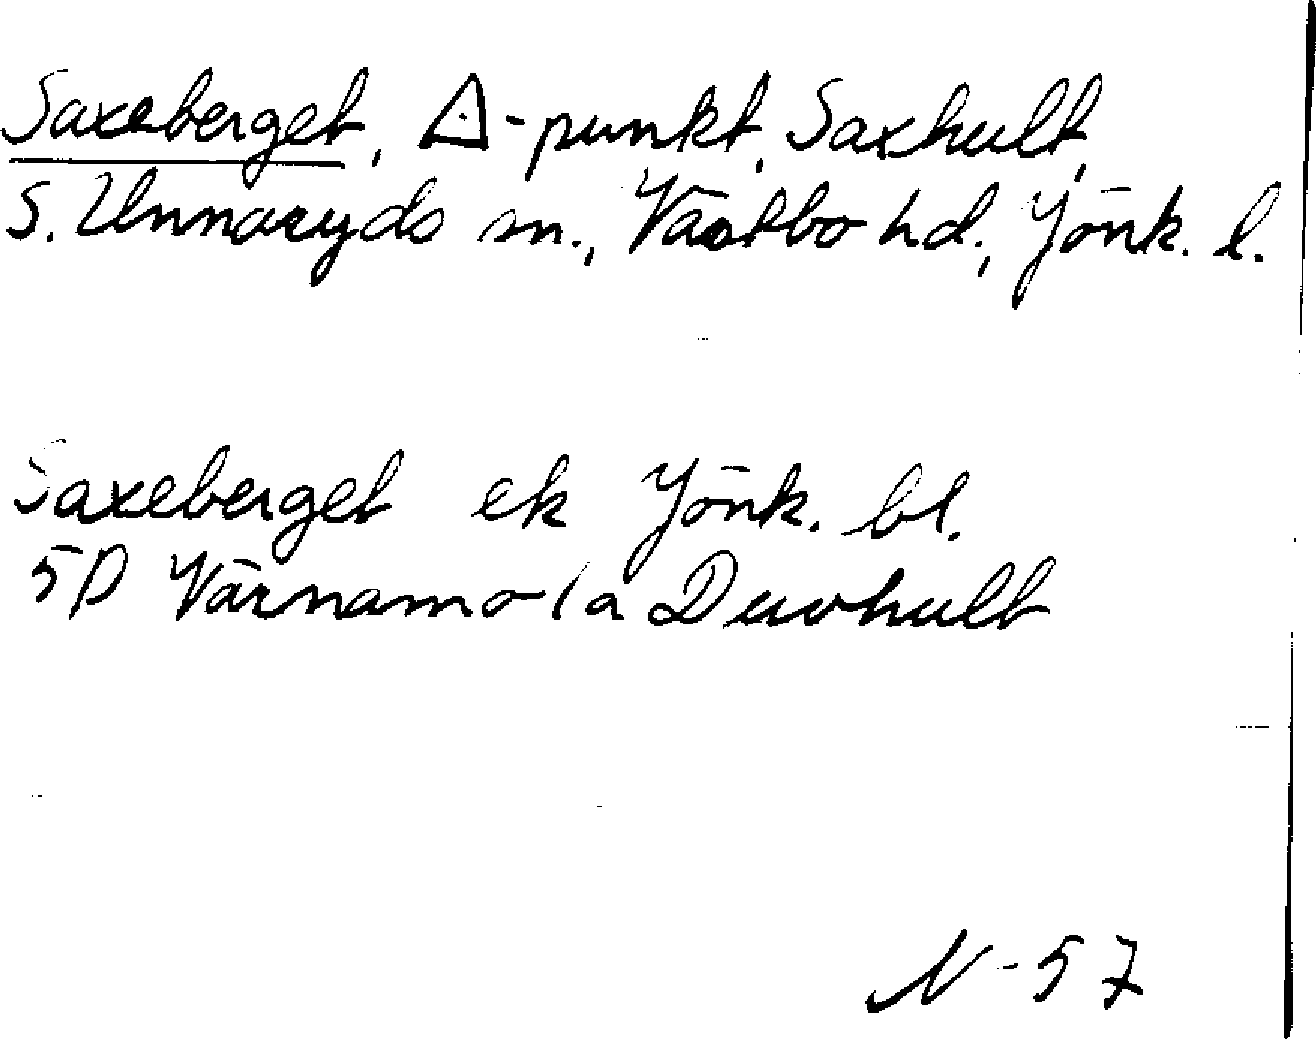 Saxeberget, △-punkt, Saxhult,
S. Unnaryds sn., Västbo hd., Jönk. l.
Saxeberget ek Jönk. bl.
5D Värnamo 1a Duvhult
N-57